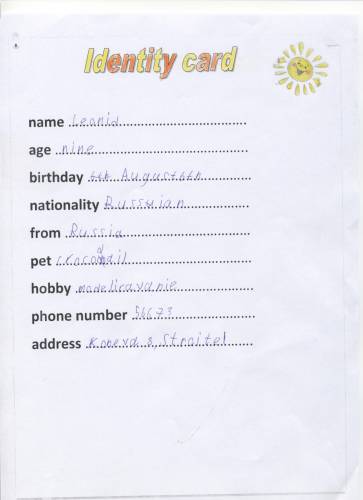 Identity card
name Leonid
age nine
birthday 6th August 6th
nationality Russian
from Russia
pet crocodil
hobby modeliravanie
phone number 56673
address 8, Stroitel